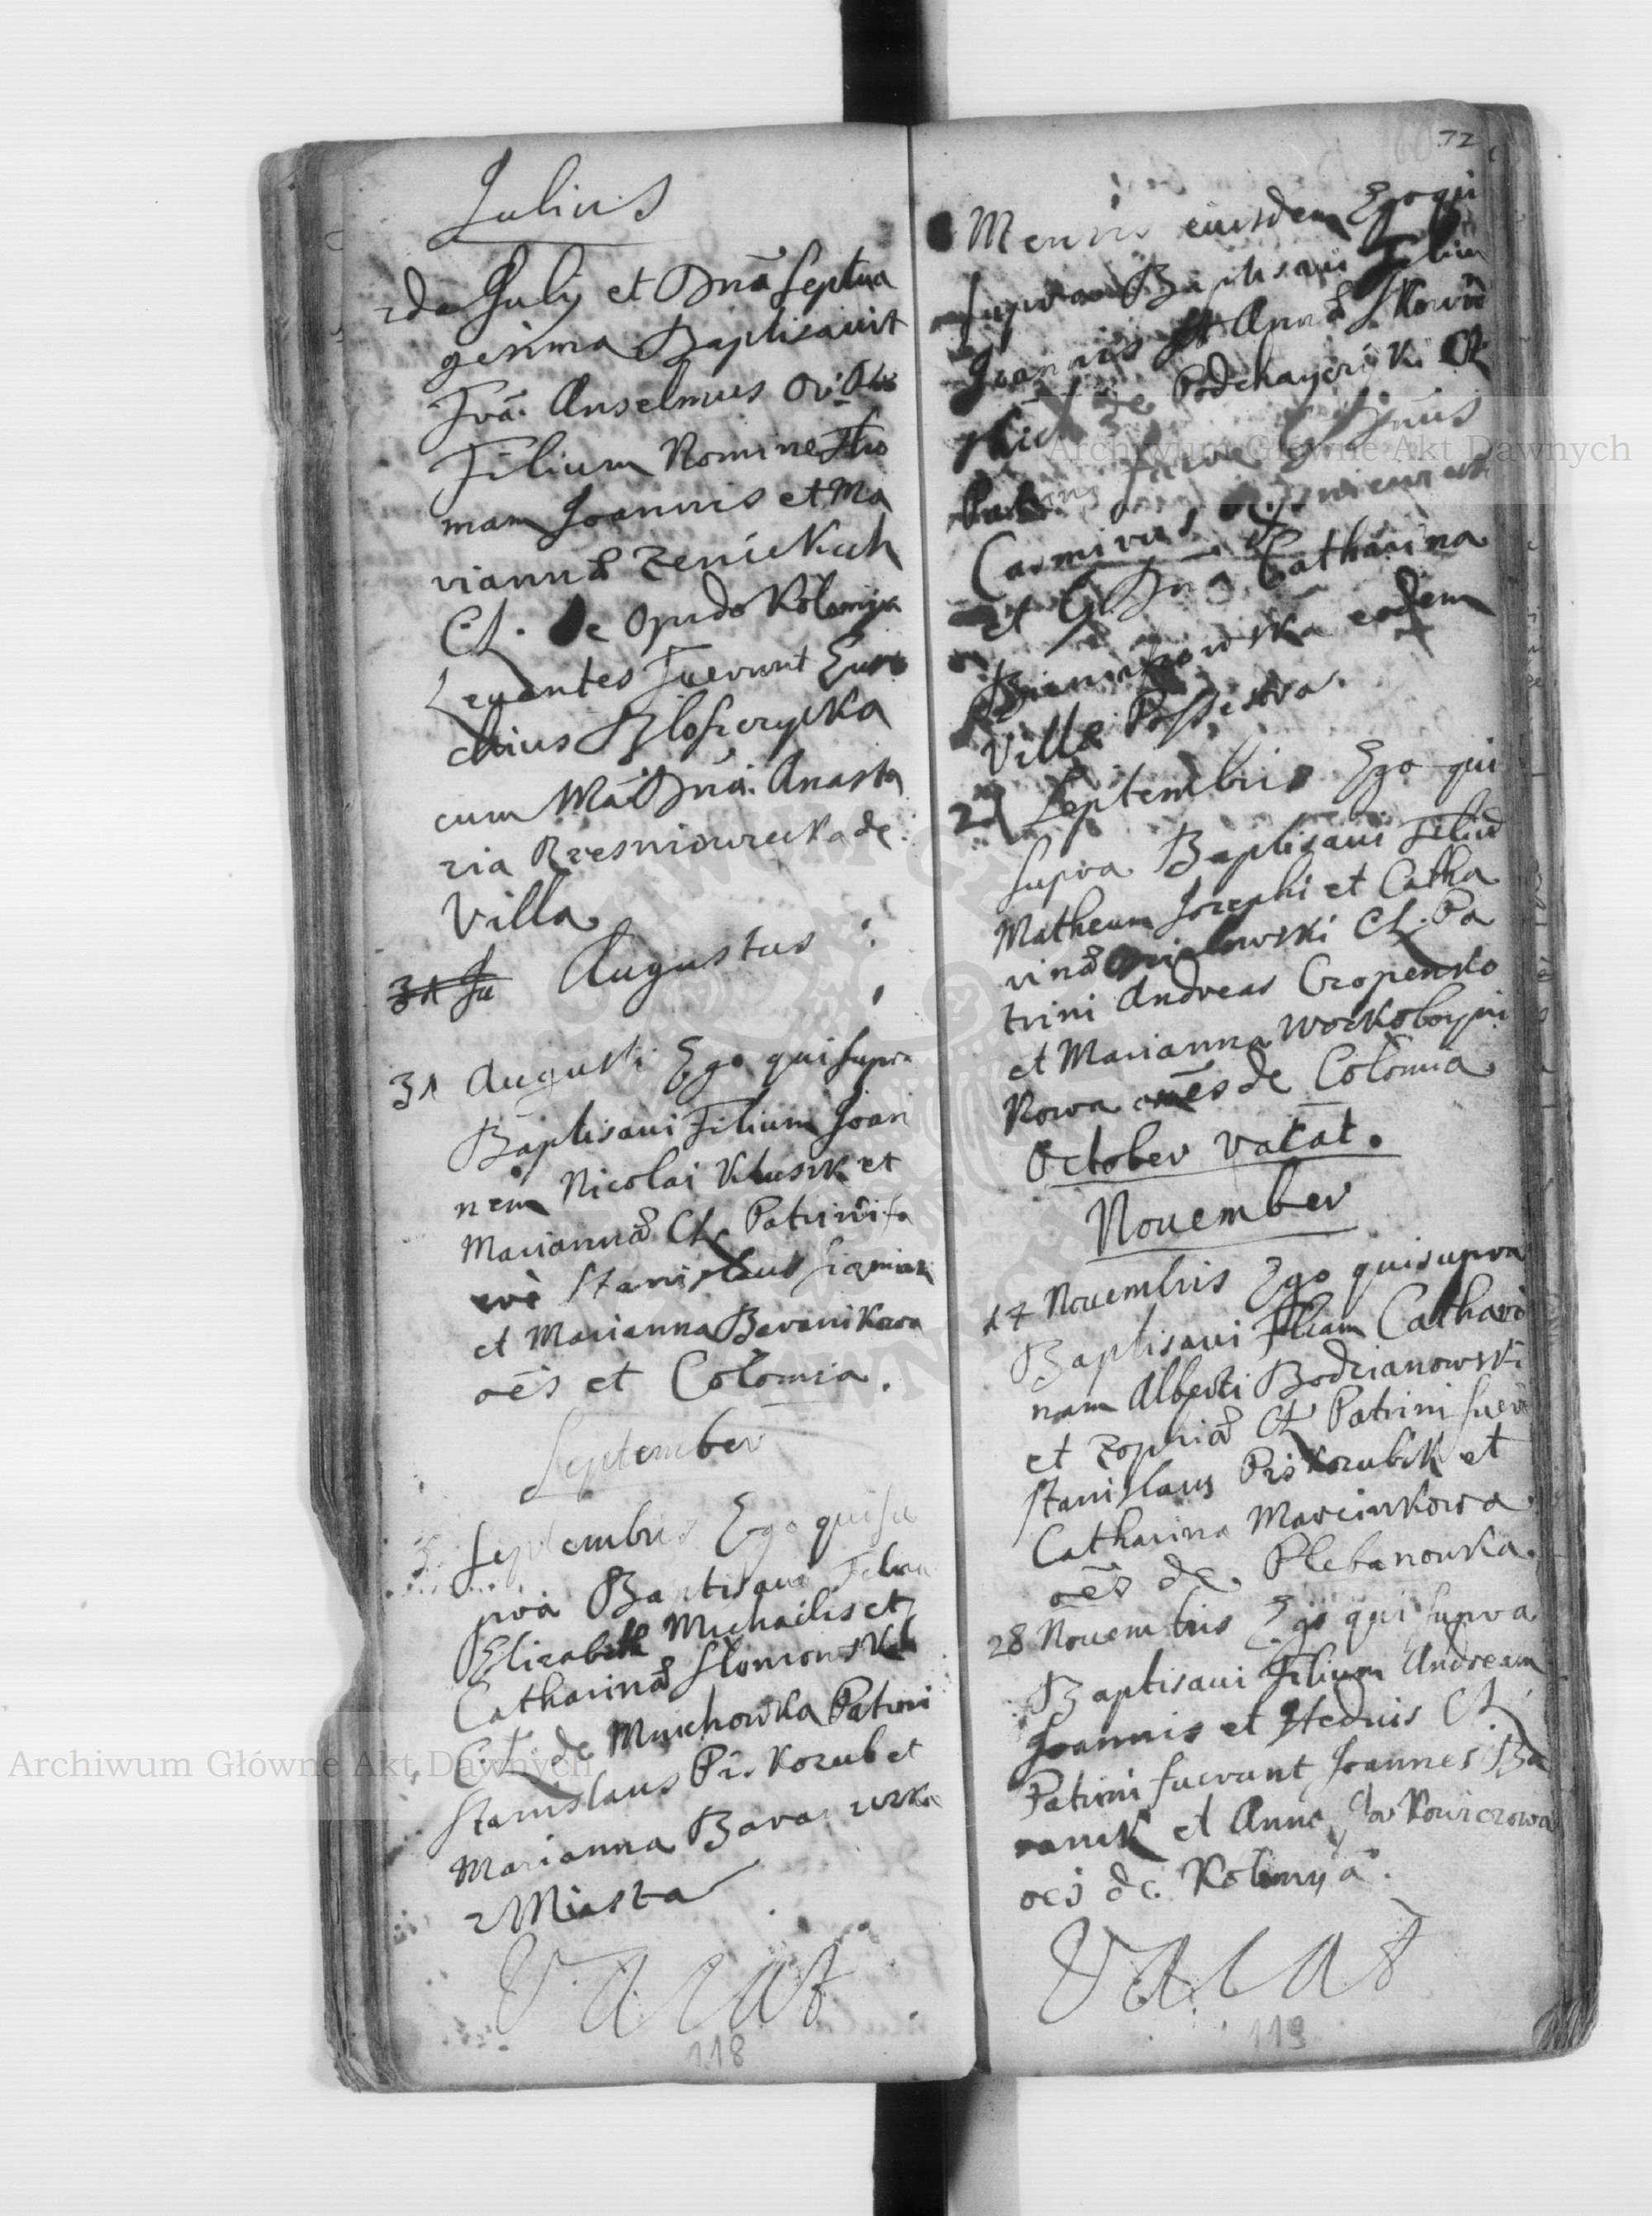 Julius
2da July et Dnã Septua
gesima Baptisavit
Frã. Anselmus
Filium Nomine Tho
mam Joannis et Ma
riannæ Zenickich
CL. de Opido Kolomyia
Levantes Fuerunt Eusta
chius
cum Mã Dnã. Anasta
zia Rzesniowiecka de
Villa
31 Ju Augustus
31 Augusti Ego qui supra
Baptisaui Filium Joan
nem Nicolai Klusik et
Mariannæ CL Patrini fu
ere Stanislaus
et Marianna Baranikowa
oēs et Colomia.
September
Septembris Ego qui su
pra Baptisaui Filiam
Elizabeth Michaelis et
Catharinæ Slomonska
CL de Muchowka Patrini
Stanislaus Piskozub et
Marianna
z Miasta
Vacat
118
72
Mensis eiusdem Ego qui
supra Baptisaui Filium
Joannis et Annæ
de Podchayczik. CL
Patrini Fuere G Dnus
Casmirus
et G Dna Catharina
eadem
Villæ Possesora.
21 Septembris Ego qui
supra Baptisaui Filiũ
Matheum Josephi et Catha
rinæ CL. Pa
trini Andreas Cropensko
et Marianna Woskoboyni
kowa omēs de Colomia
October vacat.
November
14 Novembris Ego qui supra
Baptisaui Filiam Cathari
nam Alberti Bodzianowski
et Zophiæ CL Patrini fuerũ
Stanislaus Piskozubik et
Catharina Marcinkowa
oēs de Plebanowka.
28 Novembris Ego qui supra
Baptisaui Filium Andream
Joannis et Hedvis CL.
Patrini fuerunt Joannes Ba
ranik et Anna
oēs de Kolomyia.
Vacat
119
Archiwum Główne Akt Dawnych
Archiwum Główne Akt Dawnych